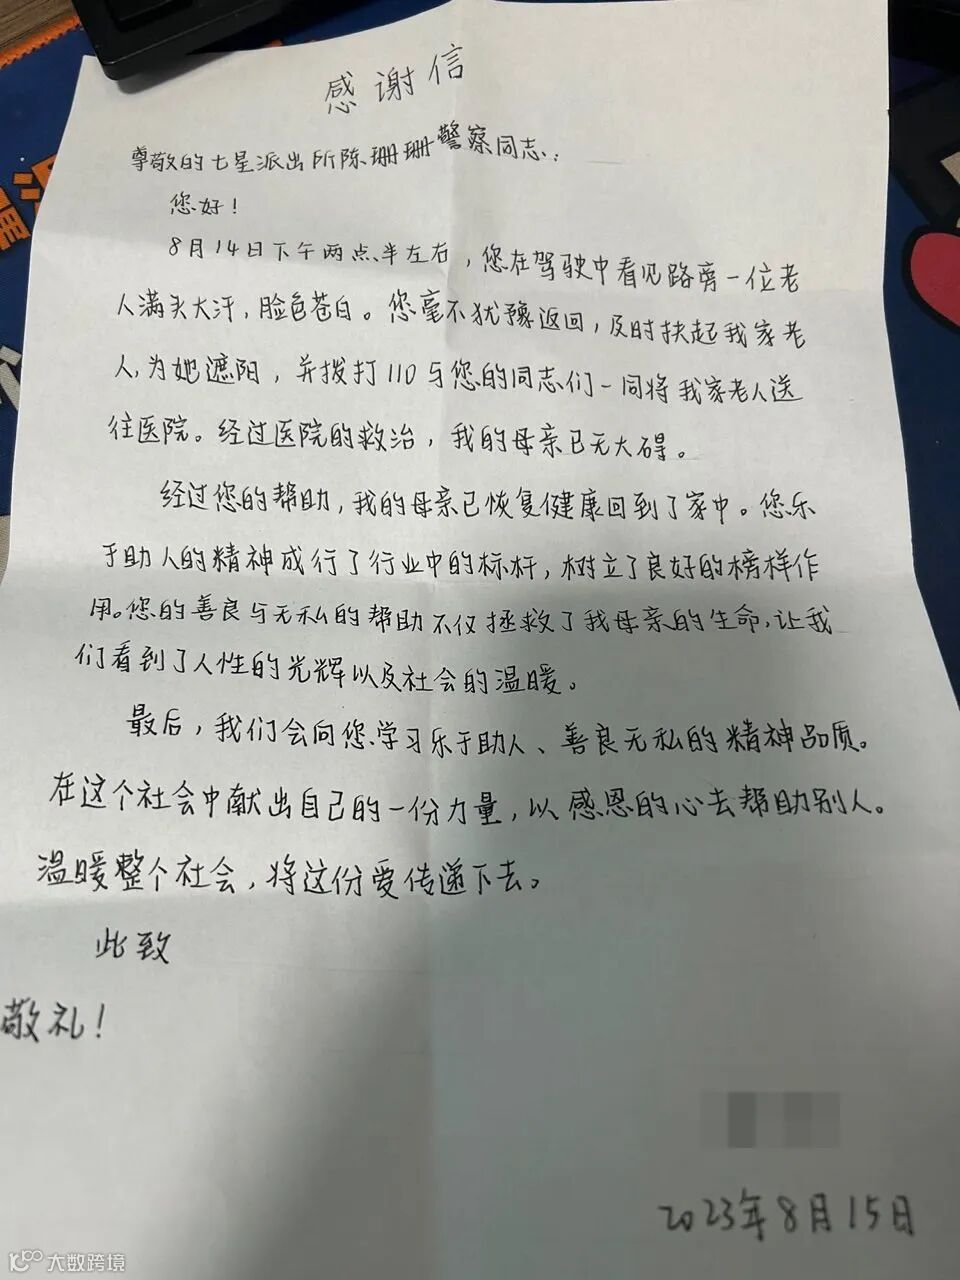 感谢信
尊敬的七星派出所陈珊珊警察同志:
您好!
8月14日下午两点半左右,您在驾驶中看见路旁一位老
人满头大汗,脸色苍白。您毫不犹豫返回,及时扶起我家老
人,为她遮阳,并拨打110与您的同志们一同将我家老人送
往医院。经过医院的救治,我的母亲已无大碍。
经过您的帮助,我的母亲已恢复健康回到了家中。您乐
于助人的精神成行了行业中的标杆,树立了良好的榜样作
用。您的善良与无私的帮助不仅拯救了我母亲的生命,让我
们看到了人性的光辉以及社会的温暖。
最后,我们会向您学习乐于助人、善良无私的精神品质。
在这个社会中献出自己的一份力量,以感恩的心去帮助别人。
温暖整个社会,将这份爱传递下去。
此致
敬礼!
2023年8月15日
大数跨境